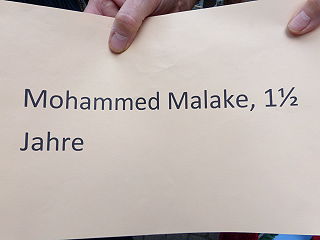 Mohammed Malake, 1½
Jahre